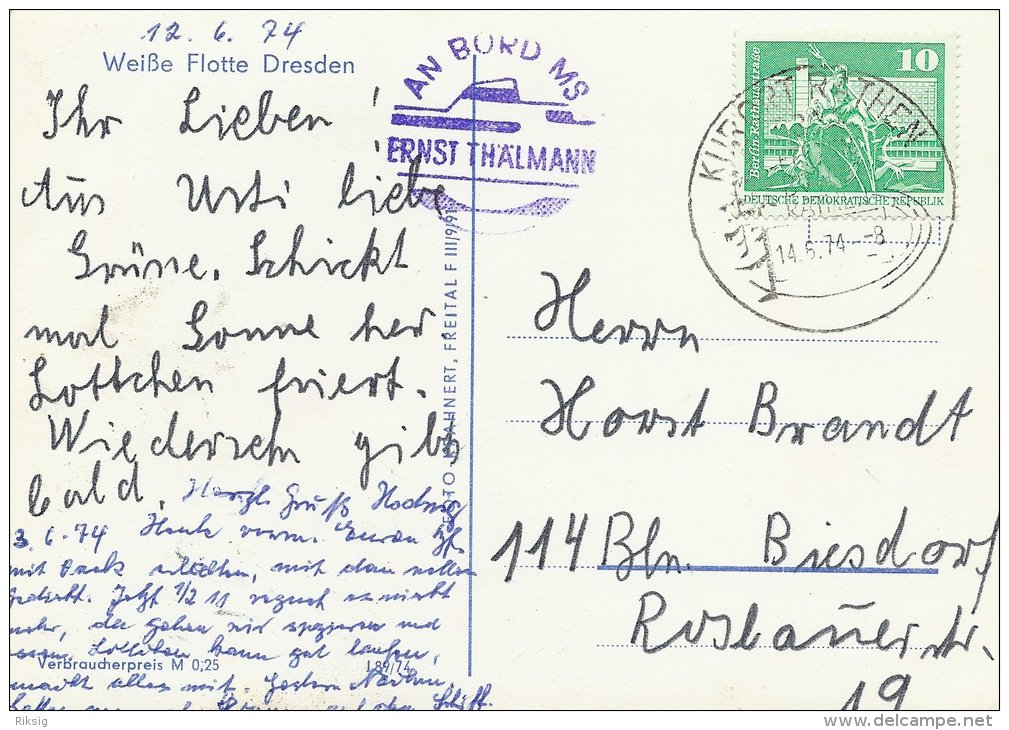 12. 6. 74
Weiße Flotte Dresden
Ihr Lieben!
Aus Usti liebe
Grüne. Schickt
mal Sonne her
Lottchen friert.
Wiedersehn gibs
bald.
Herzl. Gruß Hedwig
3. 6. 74 Heute vorm.
mit
Jetzt 1/2 11 regnet es nicht
mehr, da gehen wir spazieren und
Lottchen kann gut laufen,
macht alles mit. Gestern
Schiff.
Verbraucherpreis M 0,25
J 89/74
HAHNERT, FREITAL F III/9/91
AN BORD MS
ERNST THÄLMANN
10
Berlin, Rathausstraße
DEUTSCHE DEMOKRATISCHE REPUBLIK
KURORT RATHEN
14.6.74--8
Herrn
Horst Brandt
114 Bln. Biesdorf
Roslauerstr.
19
Riksig
www.delcampe.net